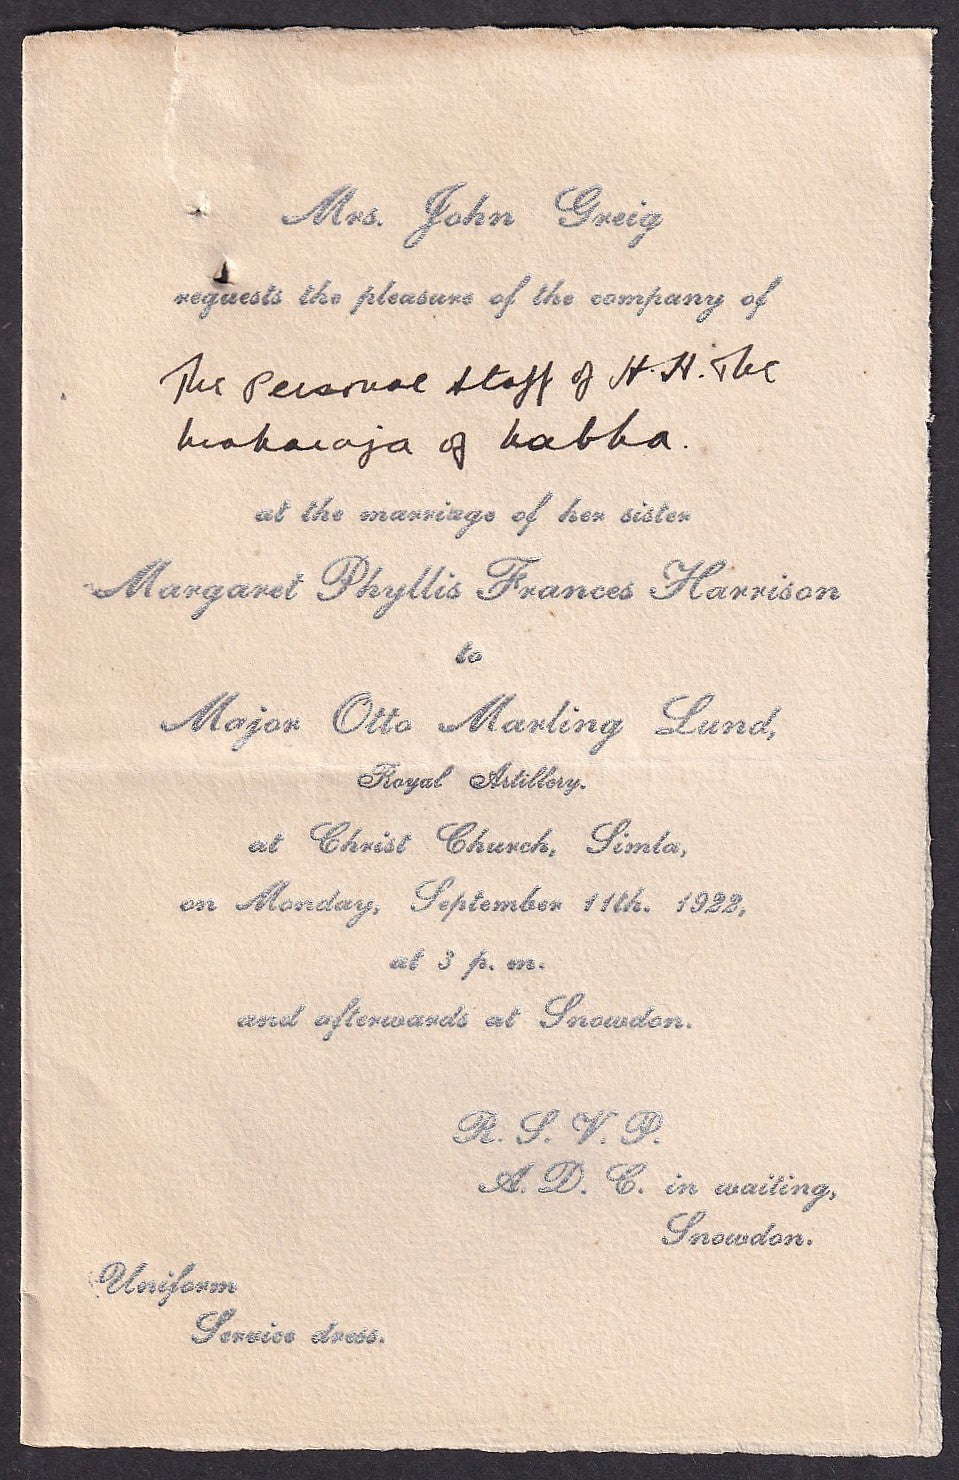 Mrs. John Greig
requests the pleasure of the company of
The Personal Staff of H. H. The
Maharaja of Nabha.
at the marriage of her sister
Margaret Phyllis Frances Harrison
to
Major Otto Marling Lund,
Royal Artillery.
at Christ Church, Simla,
on Monday, September 11th. 1922,
at 3 p. m.
and afterwards at Snowdon.
R. S. V. P.
A. D. C. in waiting,
Snowdon.
Uniform
Service dress.